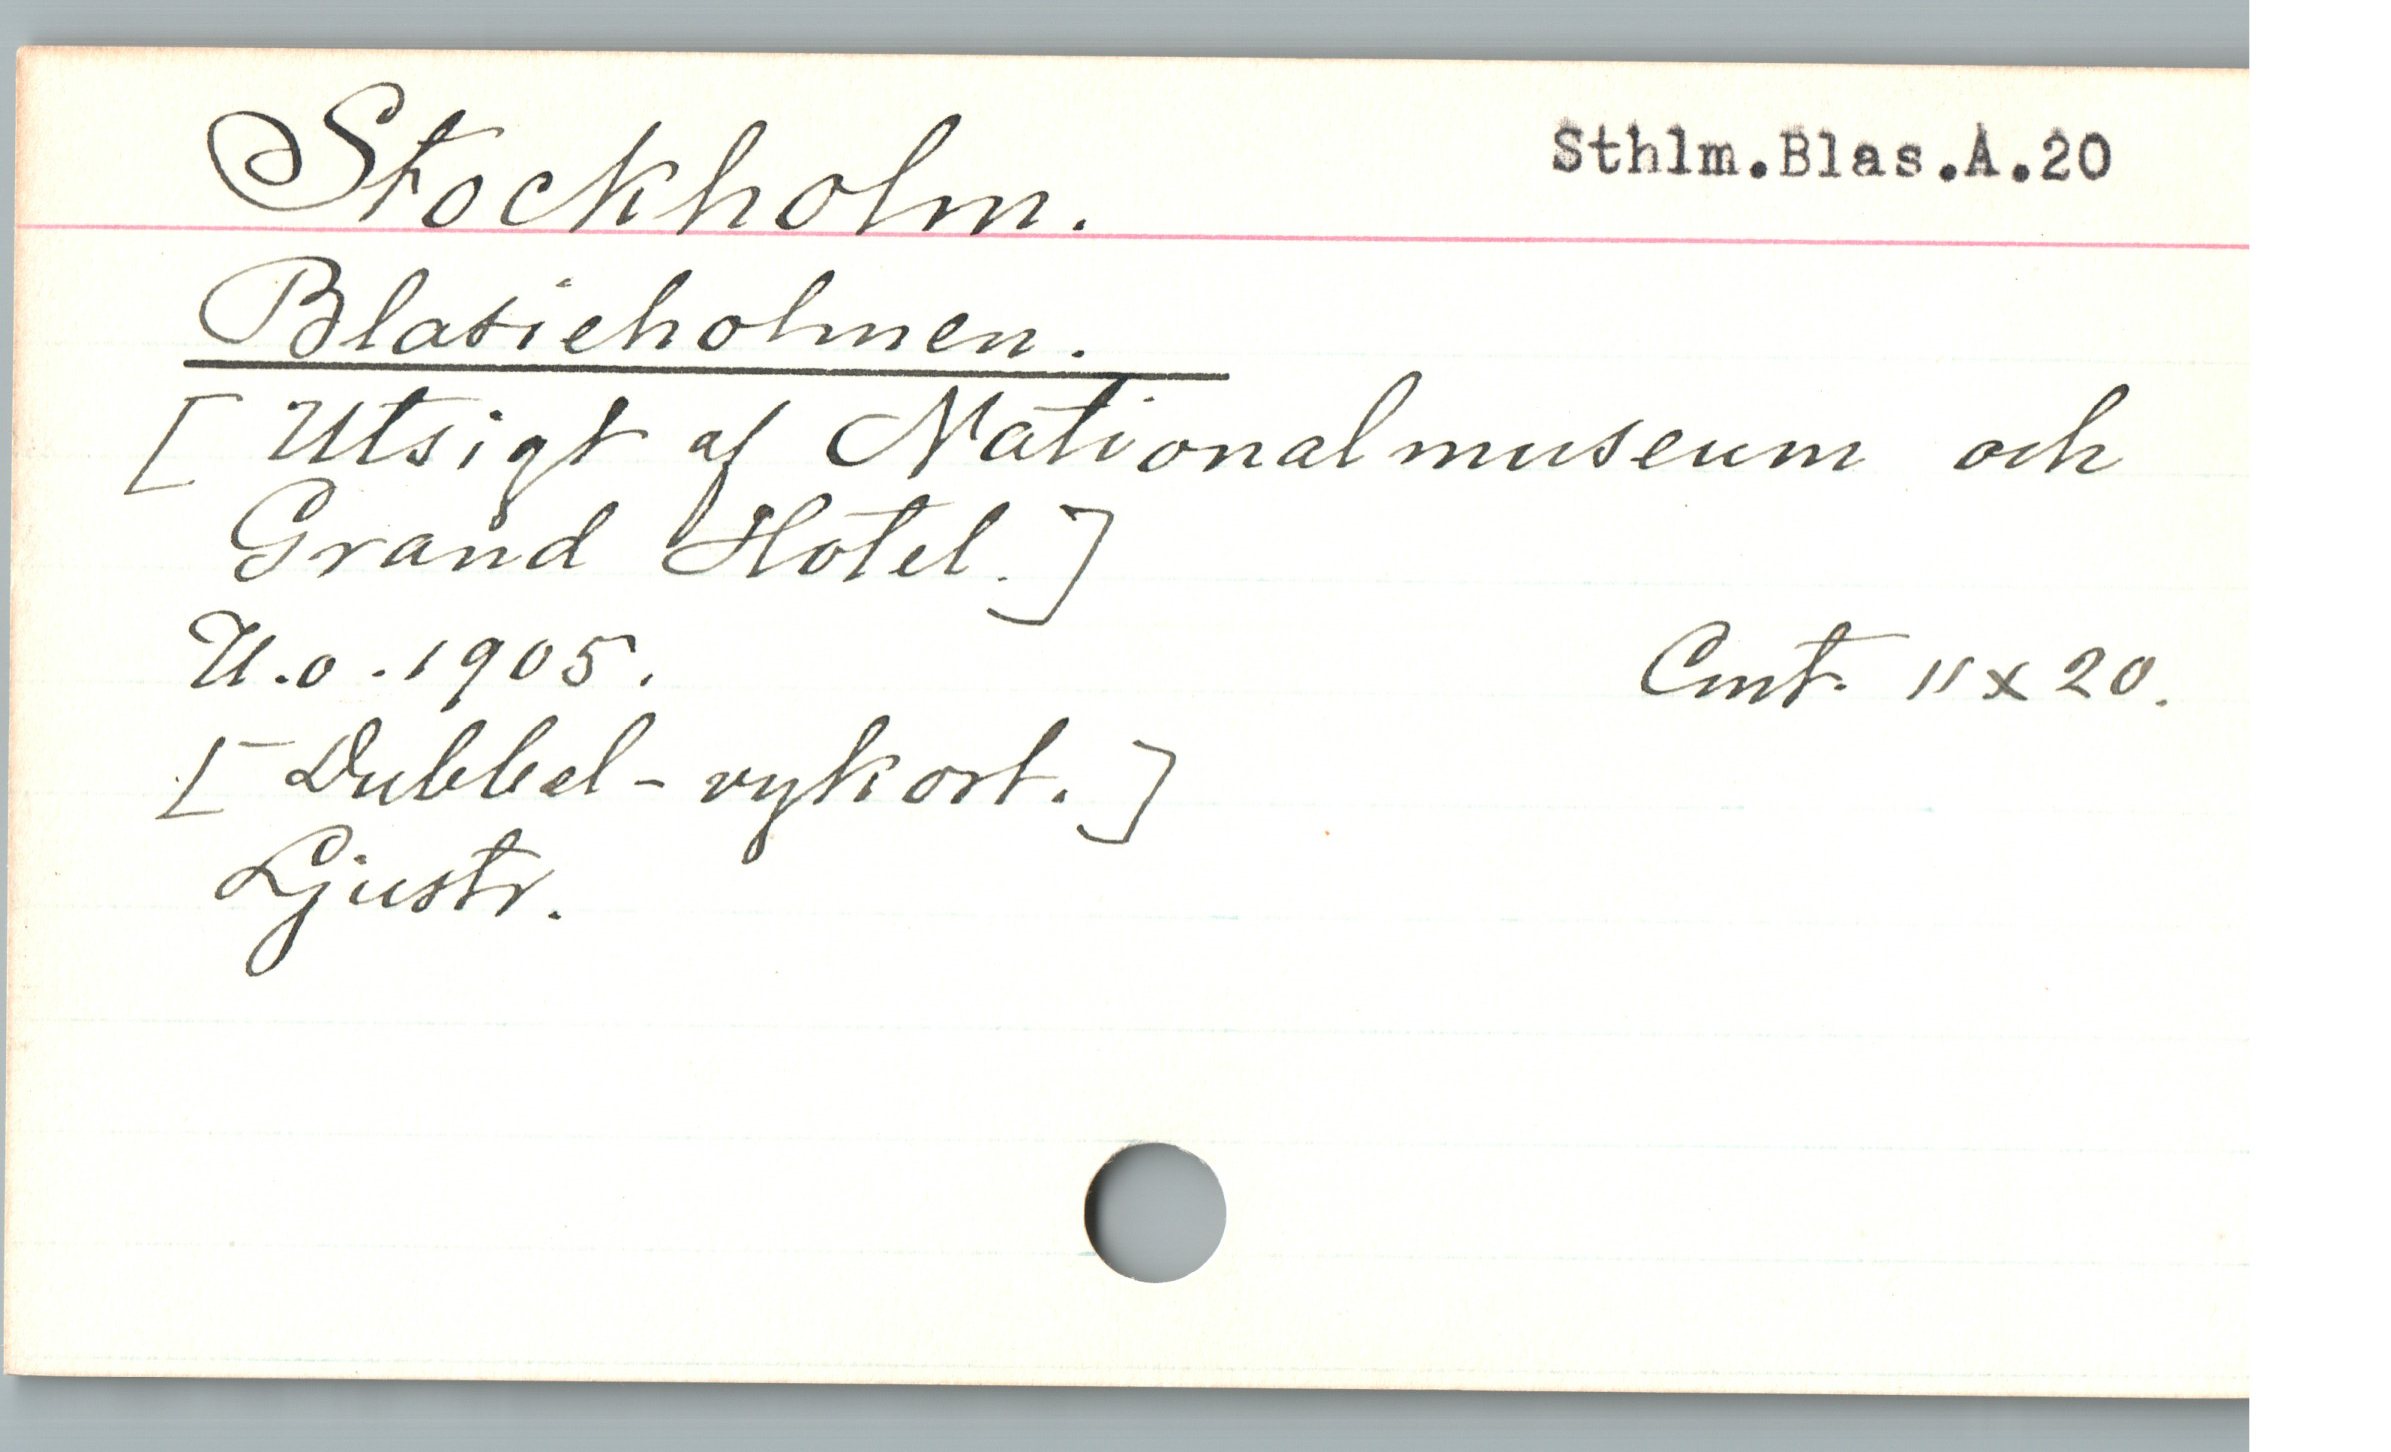 Stockholm. Sthlm.Blas.A.20
Blasieholmen.
[Utsigt af Nationalmuseum och
Grand Hotel.]
U.o. 1905. Cmt. 11 x 20.
[Dubbel-vykort.]
Ljustr.